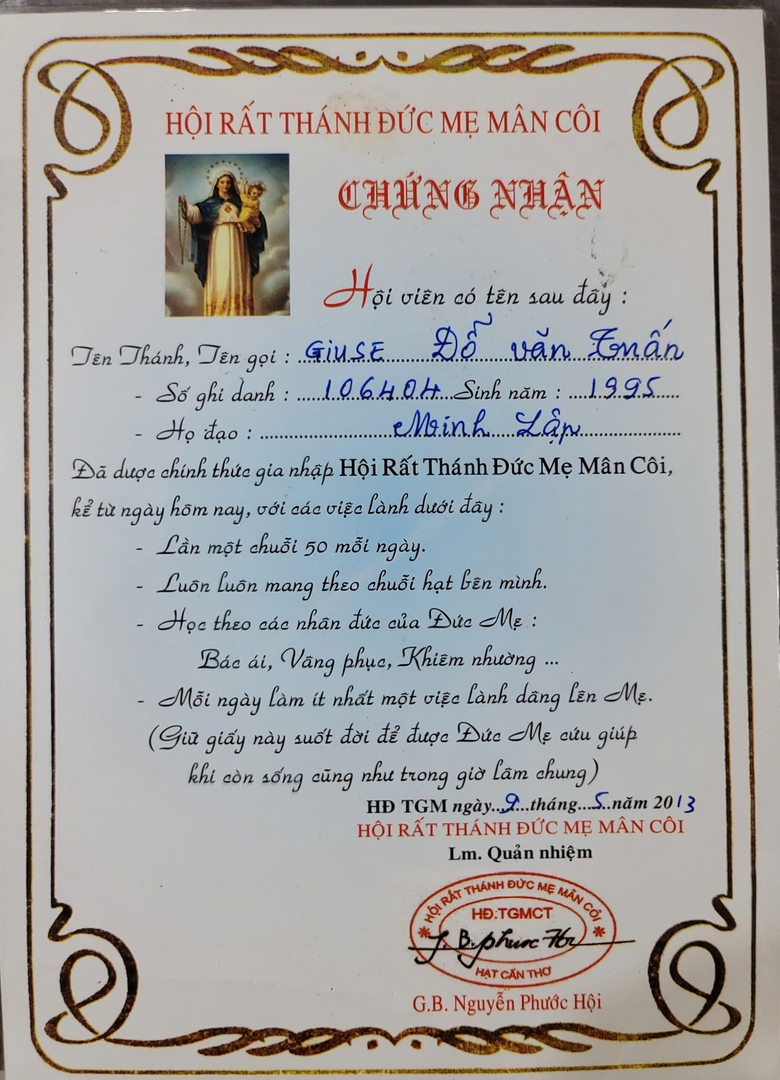 HỘI RẤT THÁNH ĐỨC MẸ MÂN CÔI
CHỨNG NHẬN
Hội viên có tên sau đây :
Tên Thánh, Tên gọi : GIUSE Đỗ văn Tuấn
- Số ghi danh : 106404 Sinh năm : 1995
- Họ đạo : Minh Lập
Đã được chính thức gia nhập Hội Rất Thánh Đức Mẹ Mân Côi,
kể từ ngày hôm nay, với các việc lành dưới đây :
- Lần một chuỗi 50 mỗi ngày.
- Luôn luôn mang theo chuỗi hạt bên mình.
- Học theo các nhân đức của Đức Mẹ :
Bác ái, Vâng phục, Khiêm nhường ...
- Mỗi ngày làm ít nhất một việc lành dâng lên Mẹ.
(Giữ giấy này suốt đời để được Đức Mẹ cứu giúp
khi còn sống cũng như trong giờ lâm chung)
HĐ TGM ngày 9 tháng 5 năm 2013
HỘI RẤT THÁNH ĐỨC MẸ MÂN CÔI
Lm. Quản nhiệm
HỘI RẤT THÁNH ĐỨC MẸ MÂN CÔI
HĐ:TGMCT
J. B. phước Hội
HẠT CẦN THƠ
G.B. Nguyễn Phước Hội